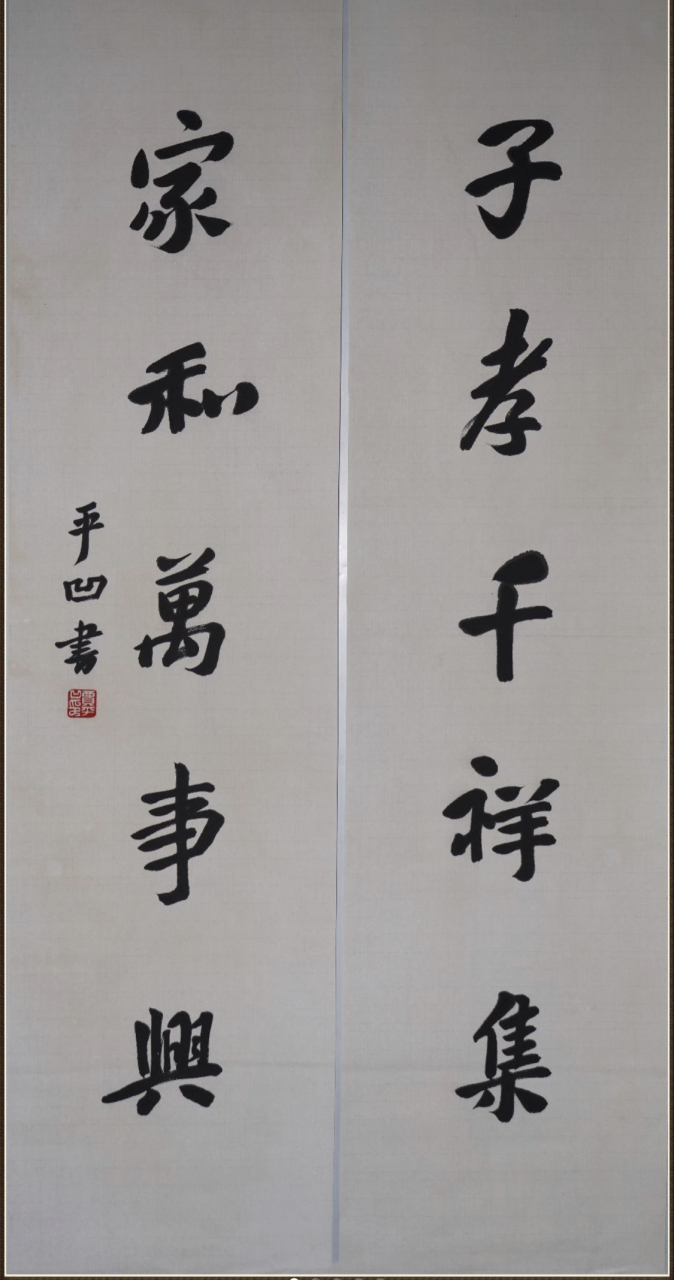 子孝千祥集
家和萬事興
平凹書